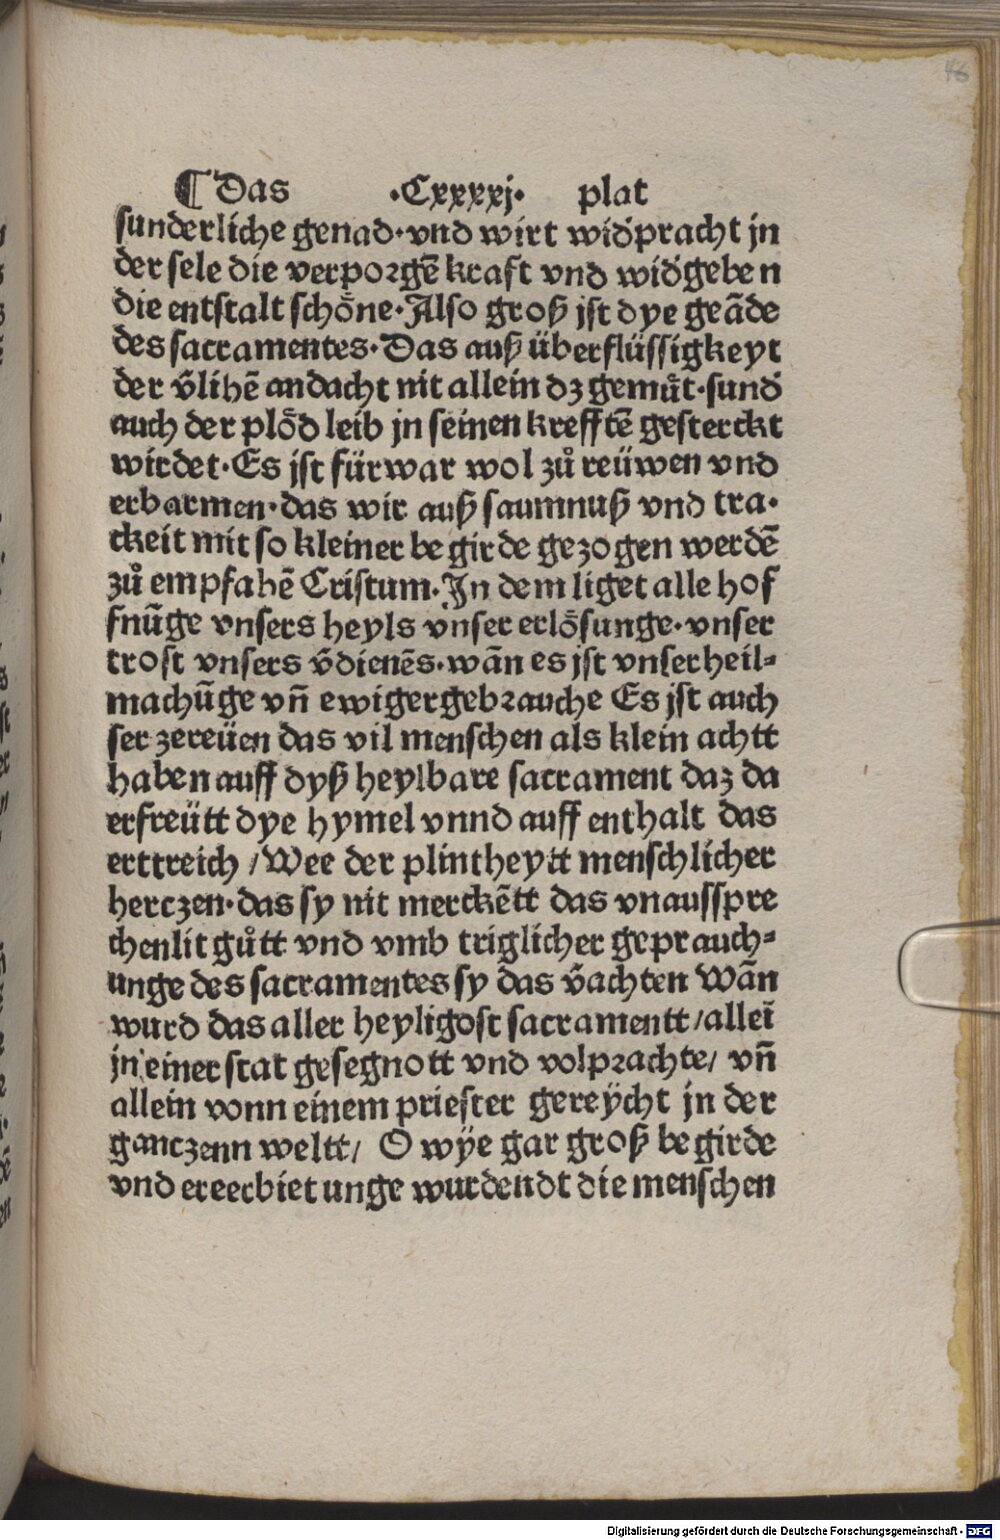 46
¶ Das ·Cxxxxj· plat
sunderliche genad·vnd wirt wid̄pracht jn
der sele die verporgē kraft vnd wid̄geben
die entstalt schoͤne·Also groß jst dye geāde
des sacramentes·Das auß überflüssigkeyt
der v̄lihē andacht nit allein dz gemuͤt·sund̄
auch der ploͤd leib jn seinen krefftē gesterckt
wirdet·Es jst fürwar wol zuͦ reüwen vnd
erbarmen·das wir auß saumnuß vnd tra·
ckeit mit so kleiner begirde gezogen werdē
zuͦ empfahē Cristum·In dem liget alle hof
fnūge vnsers heyls vnser erloͤsunge·vnser
trost vnsers v̄dienēs·wān es jst vnser heil⸗
machūge vn̄ ewiger gebrauche Es jst auch
ser zereüen das vil menschen als klein achtt
haben auff dyß heylbare sacrament daz da
erfreütt dye hymel vnnd auff enthalt das
erttreich / Wee der plintheytt menschlicher
herczen·das sy nit merckētt das vnausspre
chenlit guͦtt vnd vmb triglicher geprauch⸗
unge des sacramentes sy das v̄achten Wān
wurd das aller heyligost sacramentt / alleī
jn einer stat gesegnott vnd volprachte / vn̄
allein vonn einem priester gereÿcht jn der
ganczenn weltt / O wÿe gar groß begirde
vnd ereerbietunge wurdendt die menschen
Digitalisierung gefördert durch die Deutsche Forschungsgemeinschaft - DFG